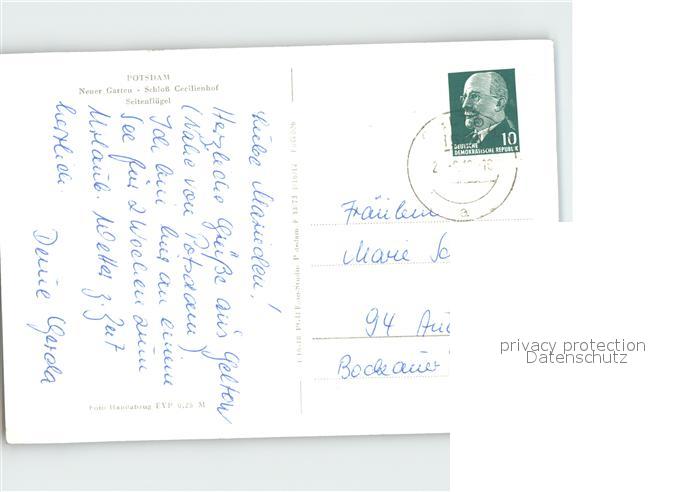 POTSDAM
Neuer Garten - Schloß Cecilienhof
Seitenflügel
Herzliche Grüße aus Geltow
(Nähe von Potsdam)
Ich bin hier an einem
See für 2 Wochen zum
Urlaub. Wetter z. Zeit
herrlich.
Deine Gerda
Foto Handabzug EVP 0,25 M
10
DEUTSCHE
DEMOKRATISCHE REPUBLIK
a
Fräulein
Marie
94
privacy protection
Datenschutz